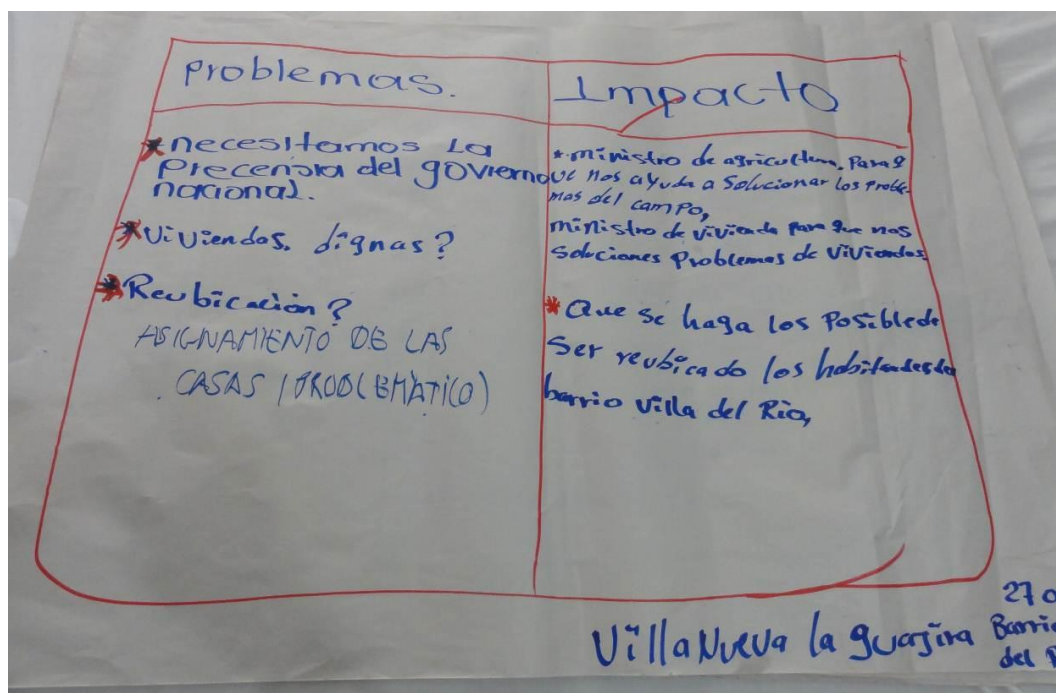 Problemas.
Impacto
*necesitamos La
Precensia del govierno
nacional.
*Viviendas. dignas?
*Reubicación?
ASIGNAMIENTO DE LAS
CASAS (PROBLEMÁTICO)
*ministro de agricultura, Para q
ue nos ayuda a Solucionar Los Proble-
mas del campo,
ministro de vivienda Para que nos
Soluciones Problemas de Viviendas.
*Que se haga los Posible de
Ser reubicado los habitandes de
barrio villa del Río,
Villa Nueva la guajira
27
Barrio
del